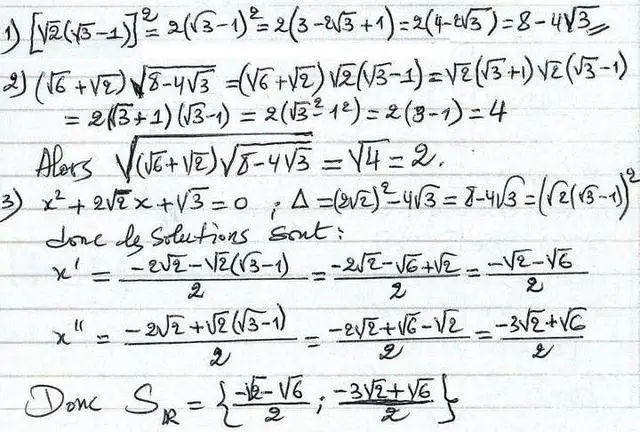 1) [√2(√3-1)]² = 2(√3-1)² = 2(3-2√3+1) = 2(4-2√3) = 8-4√3
2) (√6+√2)√(8-4√3) = (√6+√2)√2(√3-1) = √2(√3+1)√2(√3-1)
= 2(√3+1)(√3-1) = 2(√3²-1²) = 2(3-1) = 4
Alors √((√6+√2)√(8-4√3)) = √4 = 2.
3) x²+2√2x+√3=0 ; Δ=(2√2)²-4√3=8-4√3=(√2(√3-1))²
donc les solutions sont:
x' = (-2√2-√2(√3-1))/2 = (-2√2-√6+√2)/2 = (-√2-√6)/2
x'' = (-2√2+√2(√3-1))/2 = (-2√2+√6-√2)/2 = (-3√2+√6)/2
Donc S_IR = {(-√2-√6)/2 ; (-3√2+√6)/2}